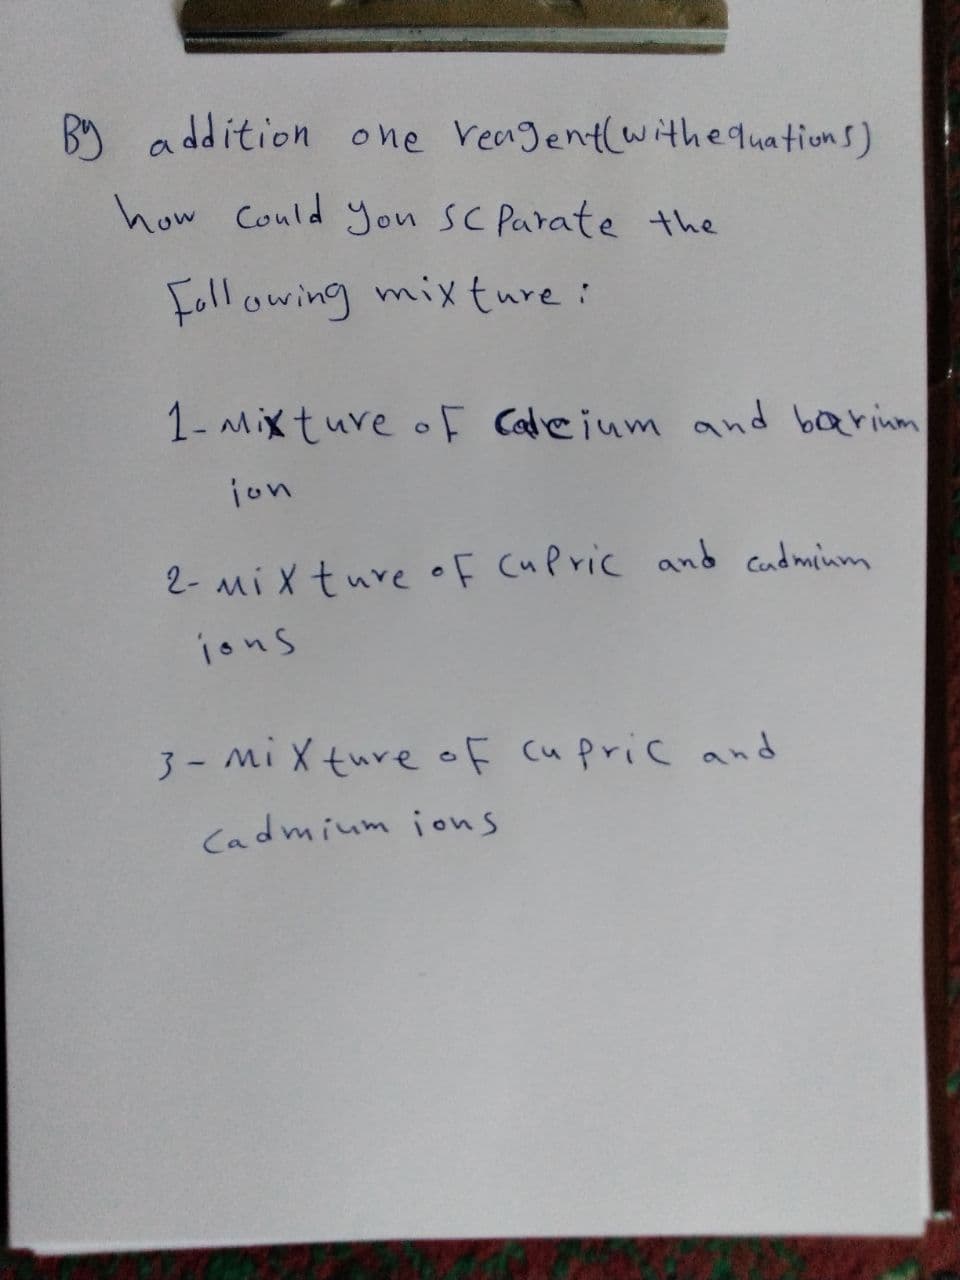 By addition one reagent(withequations)
how could you scparate the
Following mixture :
1- Mixture of Calcium and barium
ion
2- Mixture of Cupric and cadmium
ions
3- Mixture of cupric and
cadmium ions